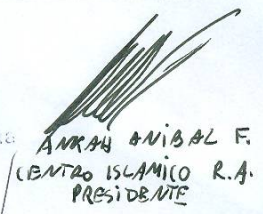 ANKAH ANIBAL F.
CENTRO ISLAMICO R.A.
PRESIDENTE